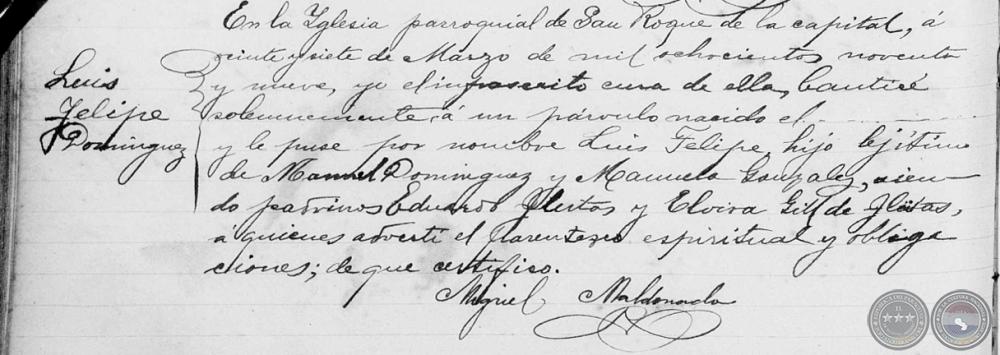 En la Iglesia parroquial de San Roque de la capital, á
veinte y siete de Marzo de mil ochocientos noventa
Luis
y nueve, yo el infrascrito cura de ella, bauticé
Felipe
solemnemente, á un párvulo nacido el
Dominguez
y le puse por nombre Luis Felipe, hijo lejítimo
de Manuel Dominguez y Manuela Gonzalez, sien-
do padrinos Eduardo y Elvira Gill de
á quienes advertí el parentezco espiritual y obliga
ciones; de que certifico.
Miguel Maldonado